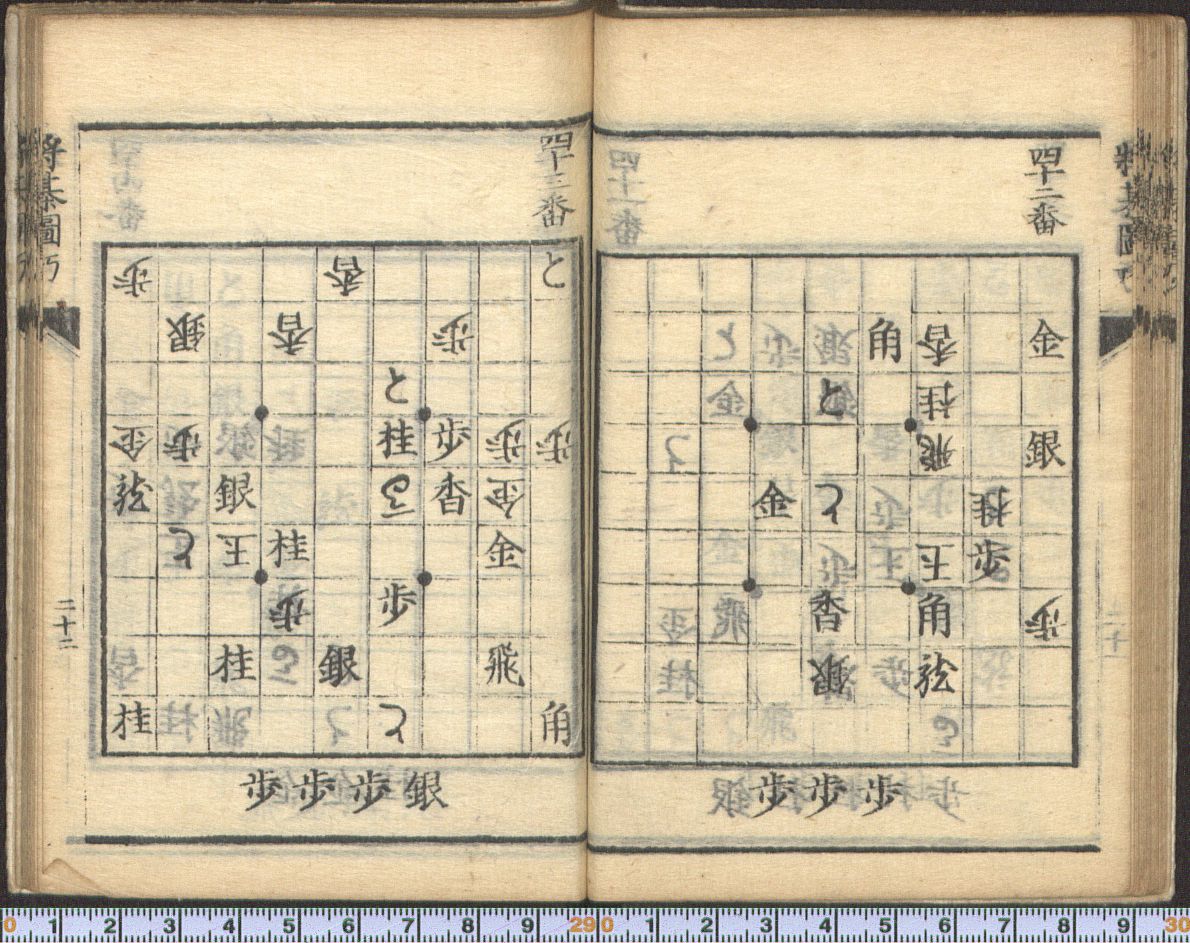 四十二番
角 香 金
と 桂
飛 銀
金 と 桂
王 歩
香 角 歩
銀
歩歩歩
四十三番
歩 香 と
銀 香 歩
と
金 歩 桂 歩 歩 歩
銀 香 金
と 王 桂 金
歩 歩
桂 銀 飛
桂 と 角
歩歩歩銀
將棊圖巧
二十二